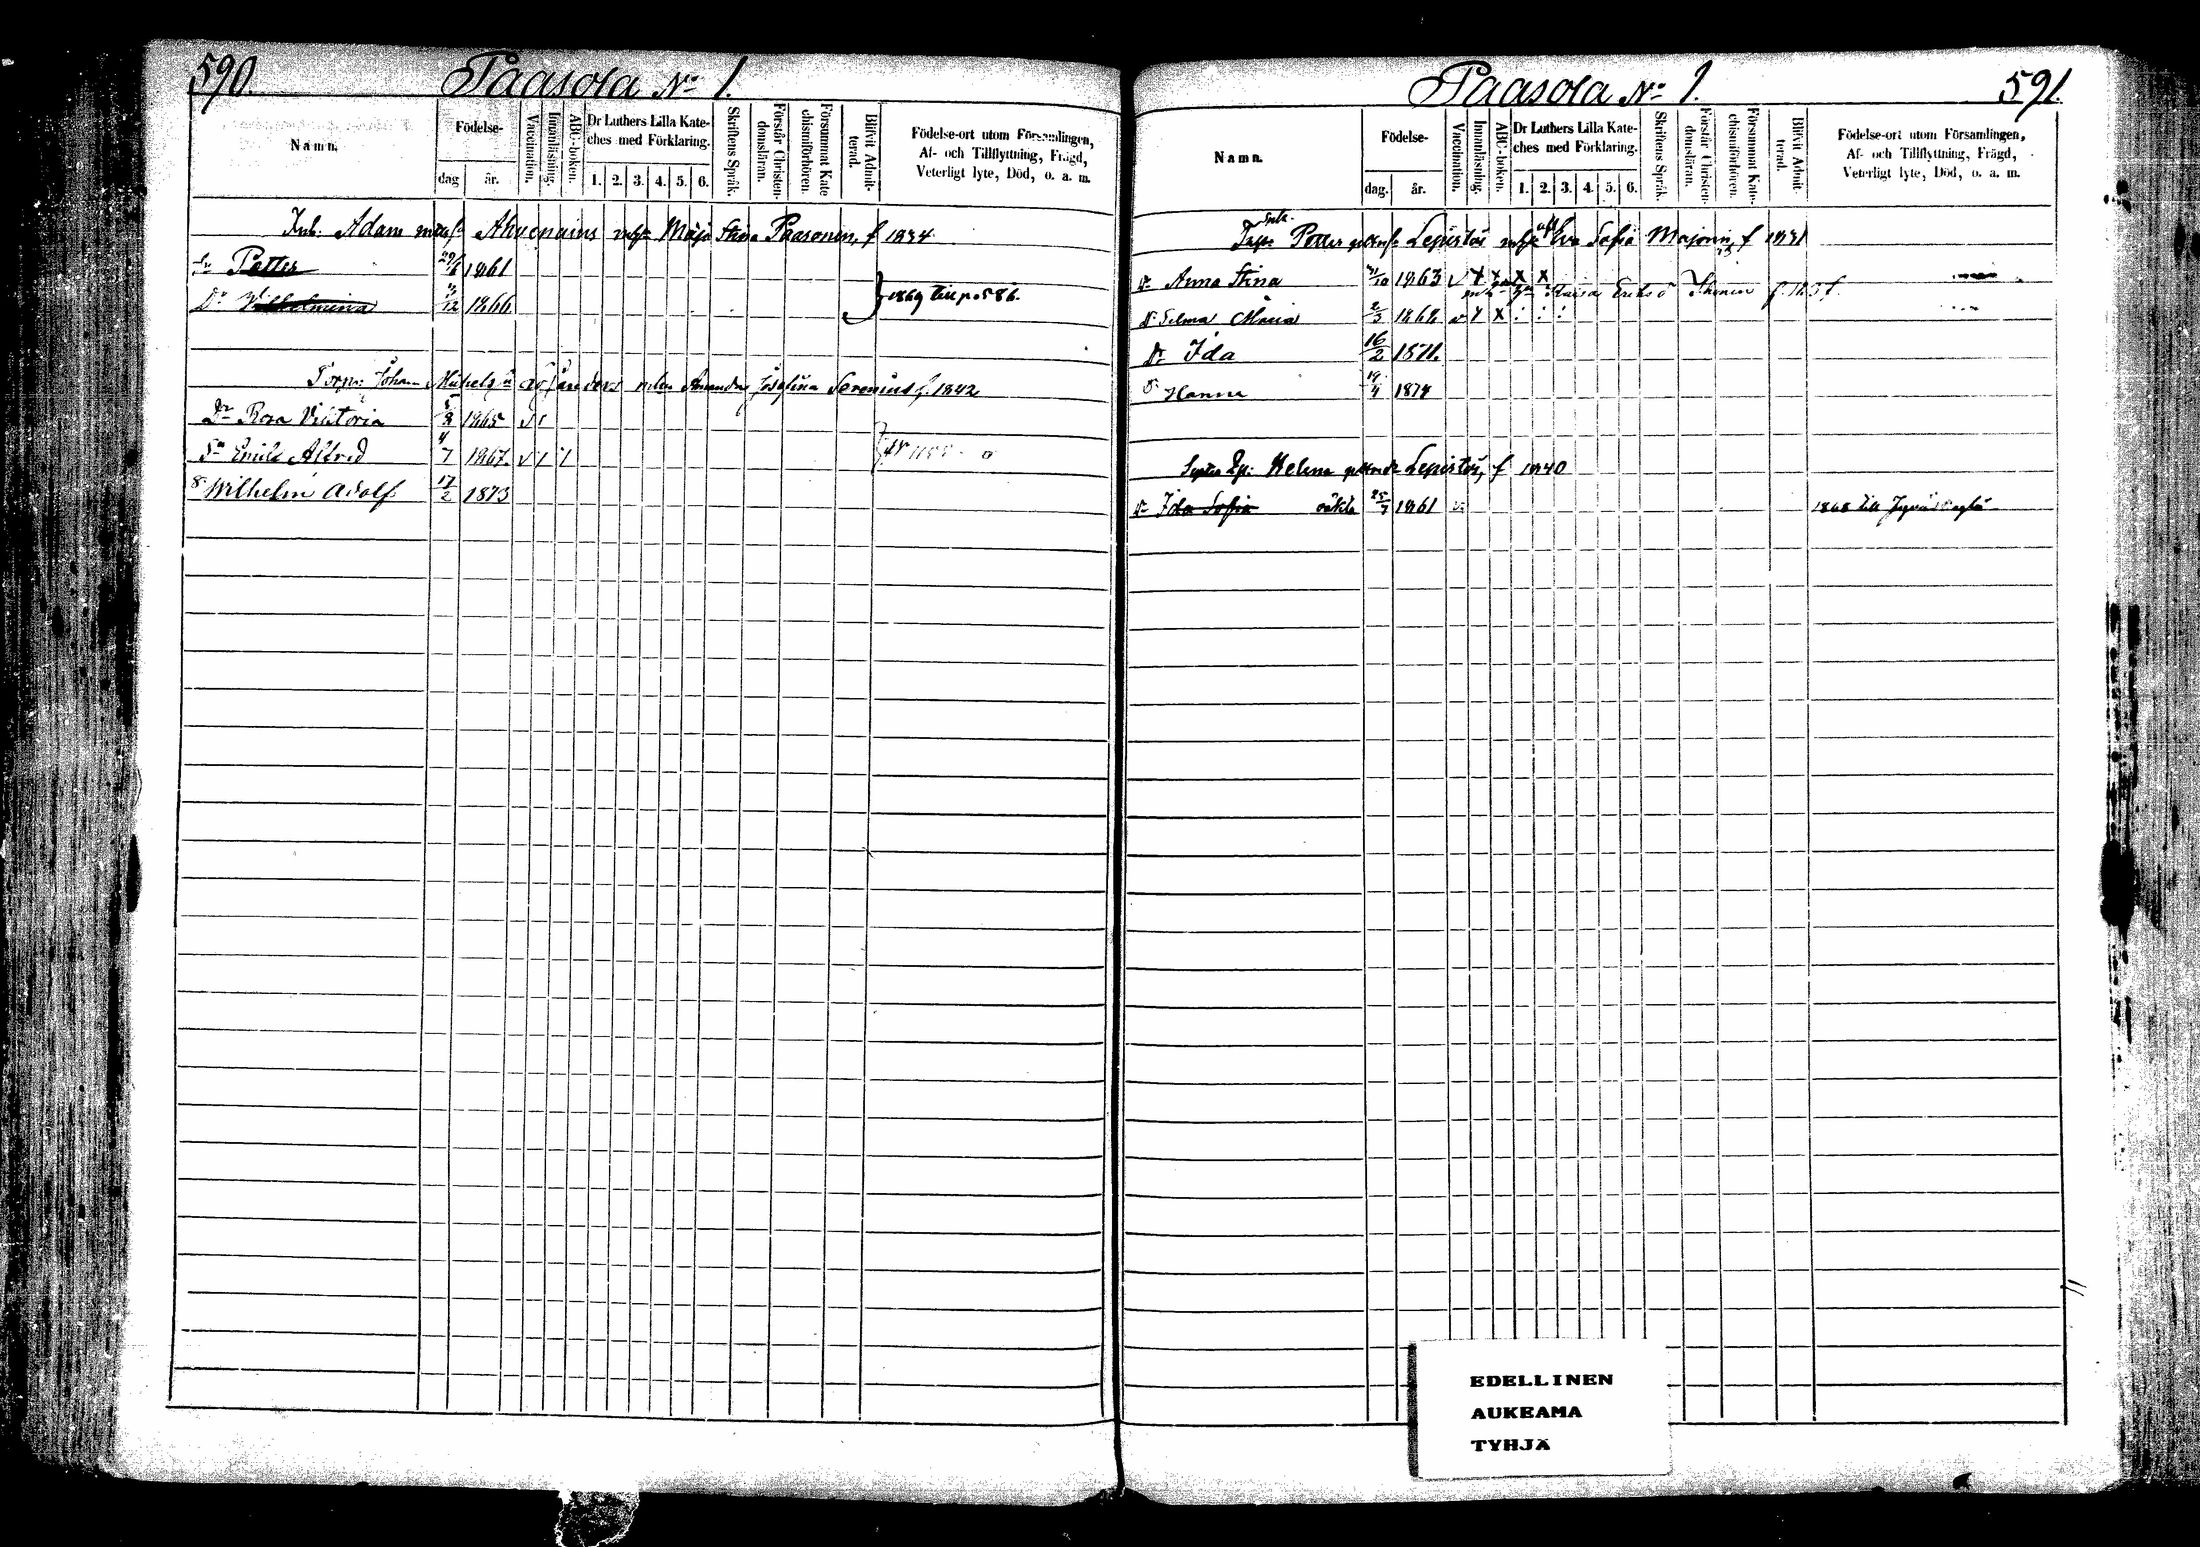 590.
Paasola No 1.
Namn.
Födelse-
dag
år.
Vaccination.
Innanläsning.
ABC-boken.
Dr Luthers Lilla Kate-
ches med Förklaring.
1. 2. 3. 4. 5. 6.
Skriftens Språk.
Förstår Christen-
domsläran.
Försummat Kate
chismiförhören.
Blifvit Admit-
terad.
Födelse-ort utom Församlingen,
Af- och Tillflyttning, Frägd,
Veterligt lyte, Död, o. a. m.
Inh. Adam Ahvenainus Maja Stina Paasonen, f 1834
Sn Petter 1861
Dr Wilhelmina 1866 1869 till p. 586.
Torp: Johan Michels n Amanda Josefina Serenius f. 1842
Dr Rosa Viktoria 5/8 1865
Sn Emil Alfred 4/7 1867
S Wilhelm Adolf 17/2 1873
Paasola No 1.
591.
Namn.
Födelse-
dag.
år.
Vaccination.
Innanläsning.
ABC-boken.
Dr Luthers Lilla Kate-
ches med Förklaring.
1. 2. 3. 4. 5. 6.
Skriftens Språk.
Förstår Christen-
domsläran.
Försummat Kate-
chismiförhören.
Blifvit Admit-
terad.
Födelse-ort utom Församlingen,
Af- och Tillflyttning, Frägd,
Veterligt lyte, Död, o. a. m.
Petter Lepistös Eva Sofia f 1831
Dr Anna Stina 1863
Kaisa Eriks d
Dr Selma Maria 2/3 1868
Dr Ida 16/2 1871.
D Hanna 19/4 1874
Helena Lepistös, f 1840
Dr Ida Sofia oäkta 25/7 1861 1868 till
EDELLINEN
AUKEAMA
TYHJÄ